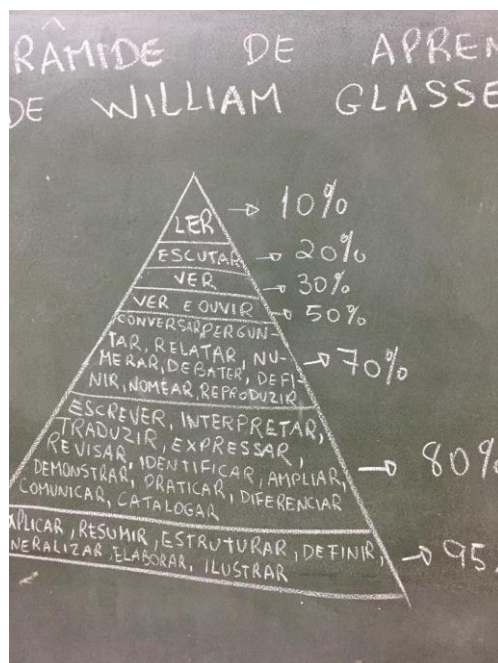 RÂMIDE DE APREN
DE WILLIAM GLASSE
LER → 10%
ESCUTAR → 20%
VER → 30%
VER E OUVIR → 50%
CONVERSAR, PERGUN-
TAR, RELATAR, NU-
MERAR, DEBATER, DEFI-
NIR, NOMEAR, REPRODUZIR → 70%
ESCREVER, INTERPRETAR,
TRADUZIR, EXPRESSAR,
REVISAR, IDENTIFICAR, AMPLIAR,
DEMONSTRAR, PRATICAR, DIFERENCIAR → 80%
COMUNICAR, CATALOGAR
XPLICAR, RESUMIR, ESTRUTURAR, DEFINIR, → 95
NERALIZAR, ELABORAR, ILUSTRAR